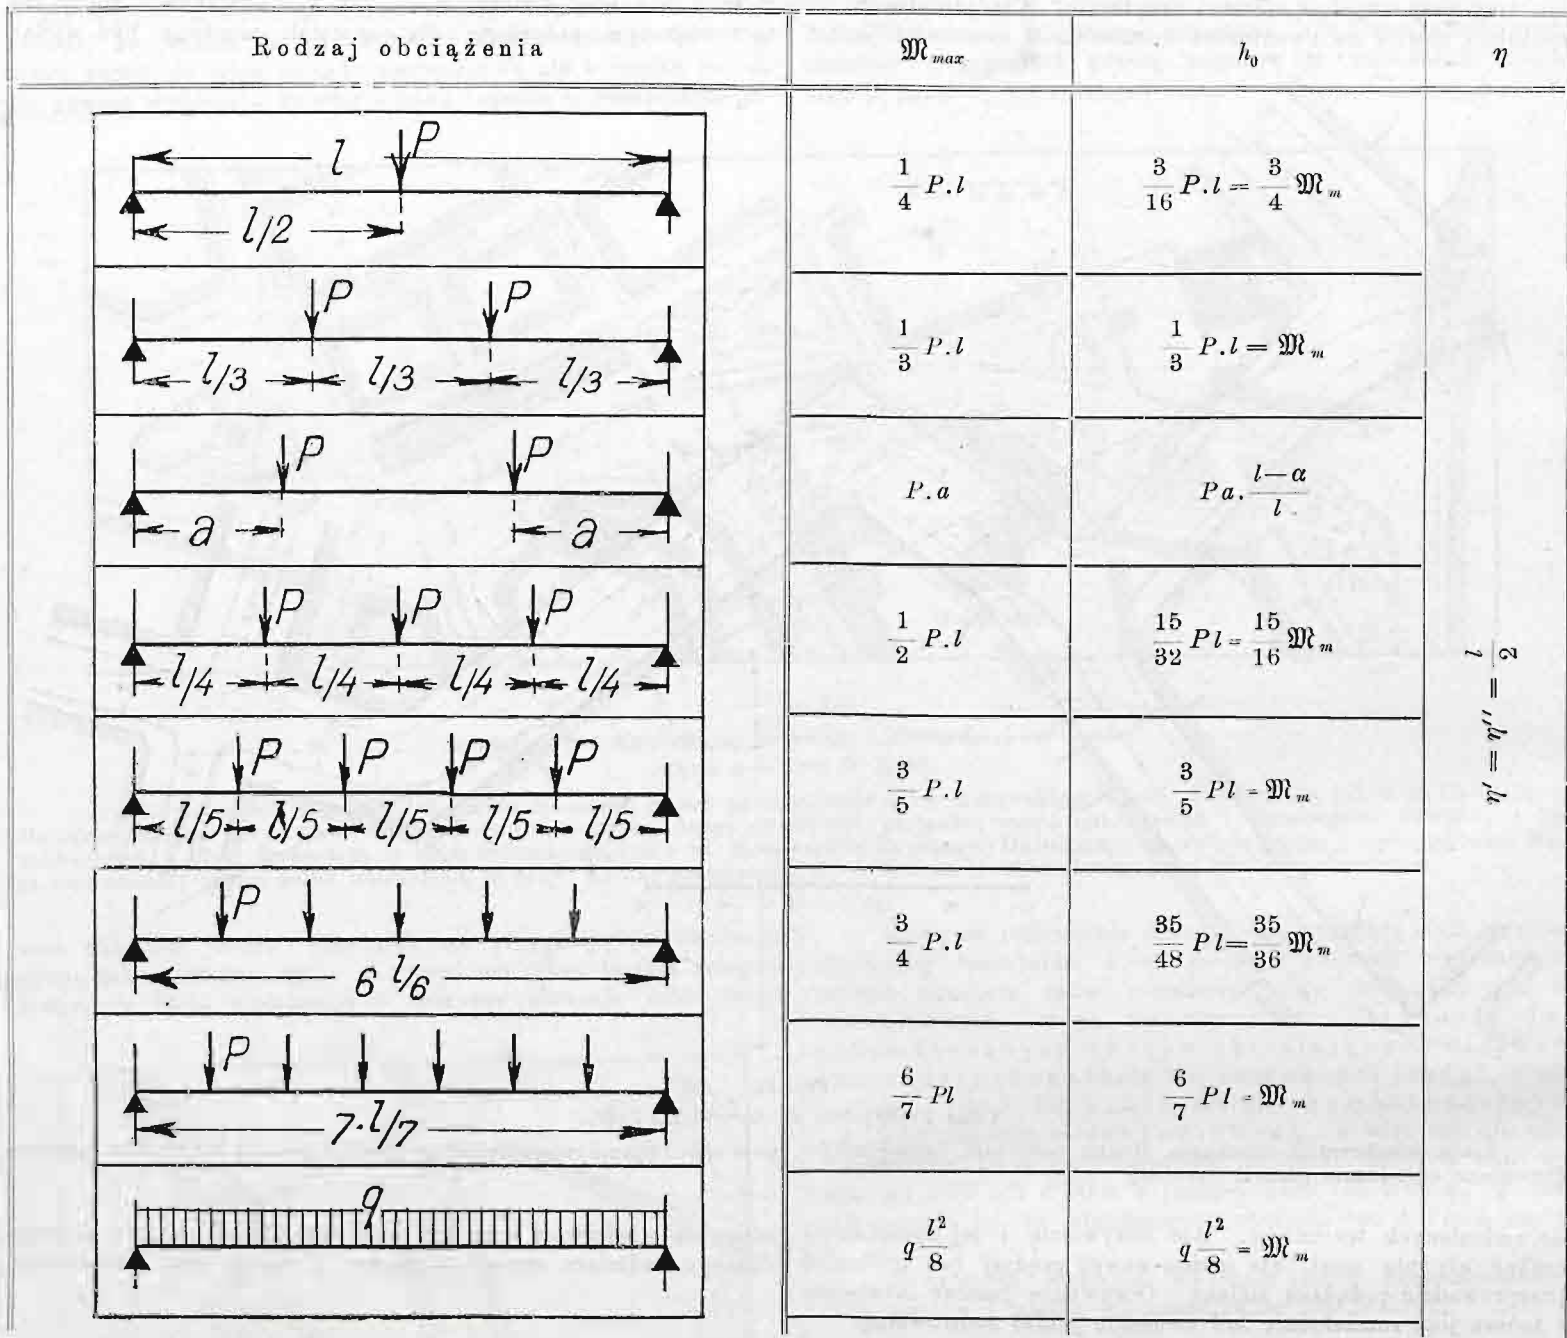 Rodzaj obciążenia 𝔐 max h₀ η
l P l/2 1/4 P.l 3/16 P.l = 3/4 𝔐 m
P P l/3 l/3 l/3 1/3 P.l 1/3 P.l = 𝔐 m
P P a a P.a Pa. l—α/l
P P P l/4 l/4 l/4 l/4 1/2 P.l 15/32 Pl = 15/16 𝔐 m
P P P P l/5 l/5 l/5 l/5 l/5 3/5 P.l 3/5 Pl = 𝔐 m
P 6 l/6 3/4 P.l 35/48 Pl = 35/36 𝔐 m
P 7·l/7 6/7 Pl 6/7 Pl = 𝔐 m
q q l²/8 q l²/8 = 𝔐 m
η' = η'' = 2/l